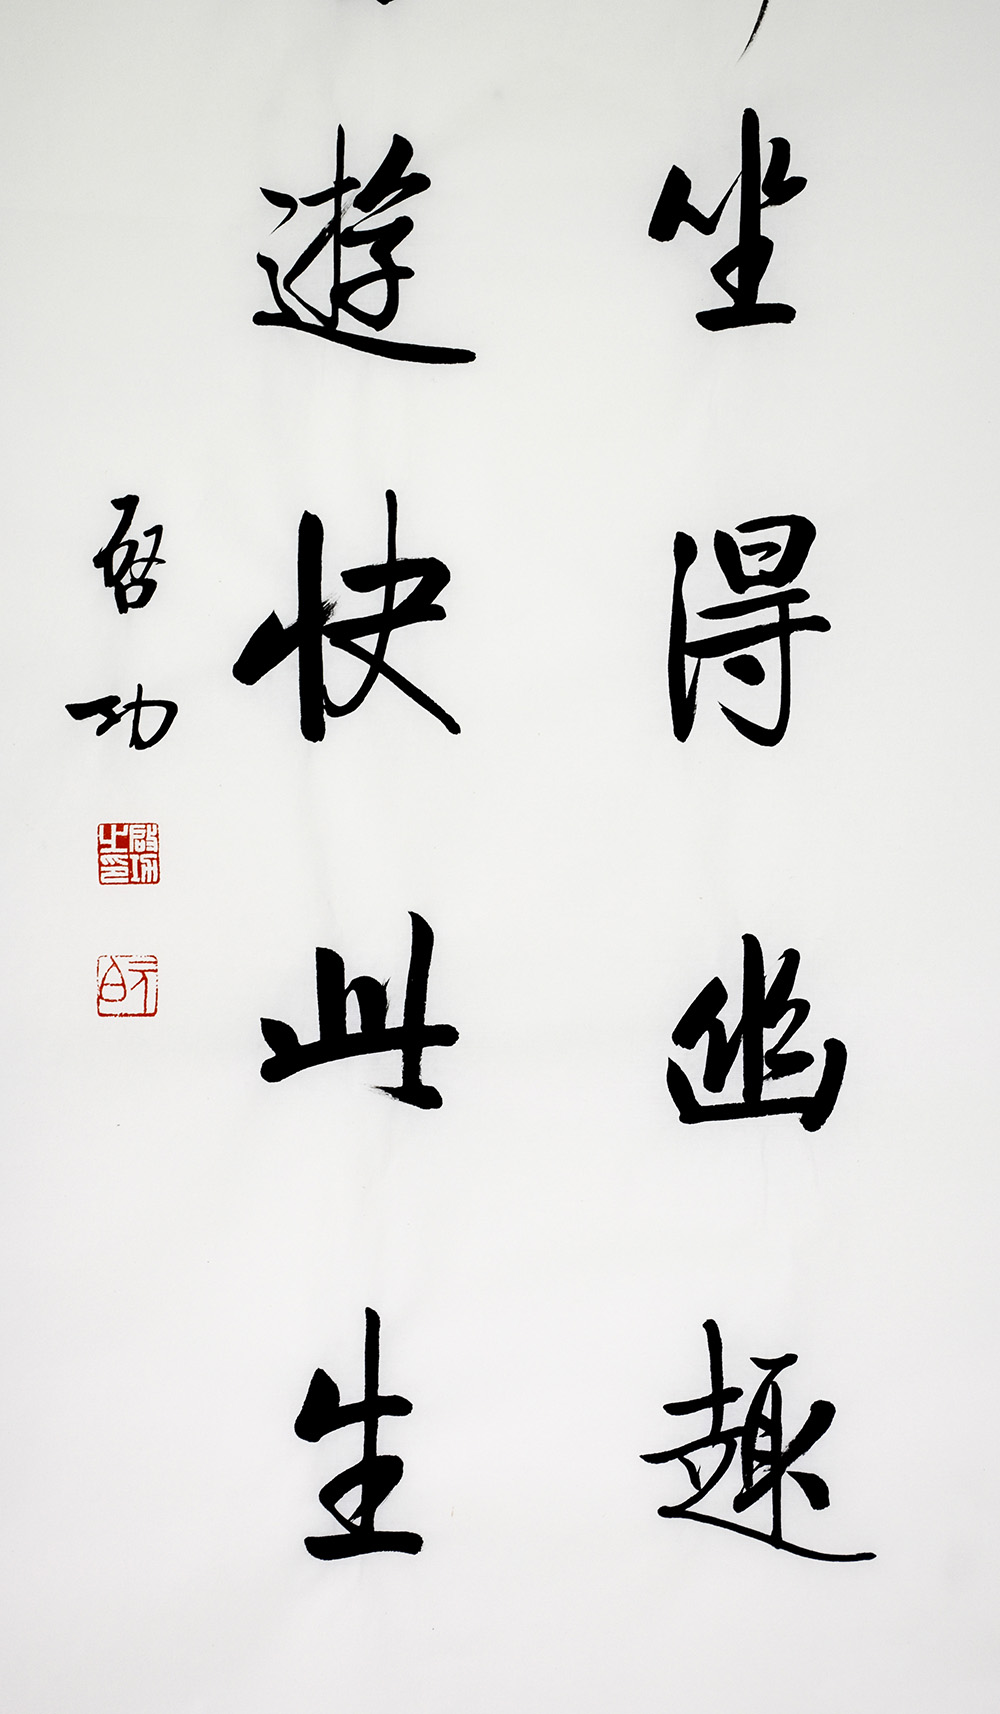 坐得幽趣
遊快此生
啓功
啟功之印
元白